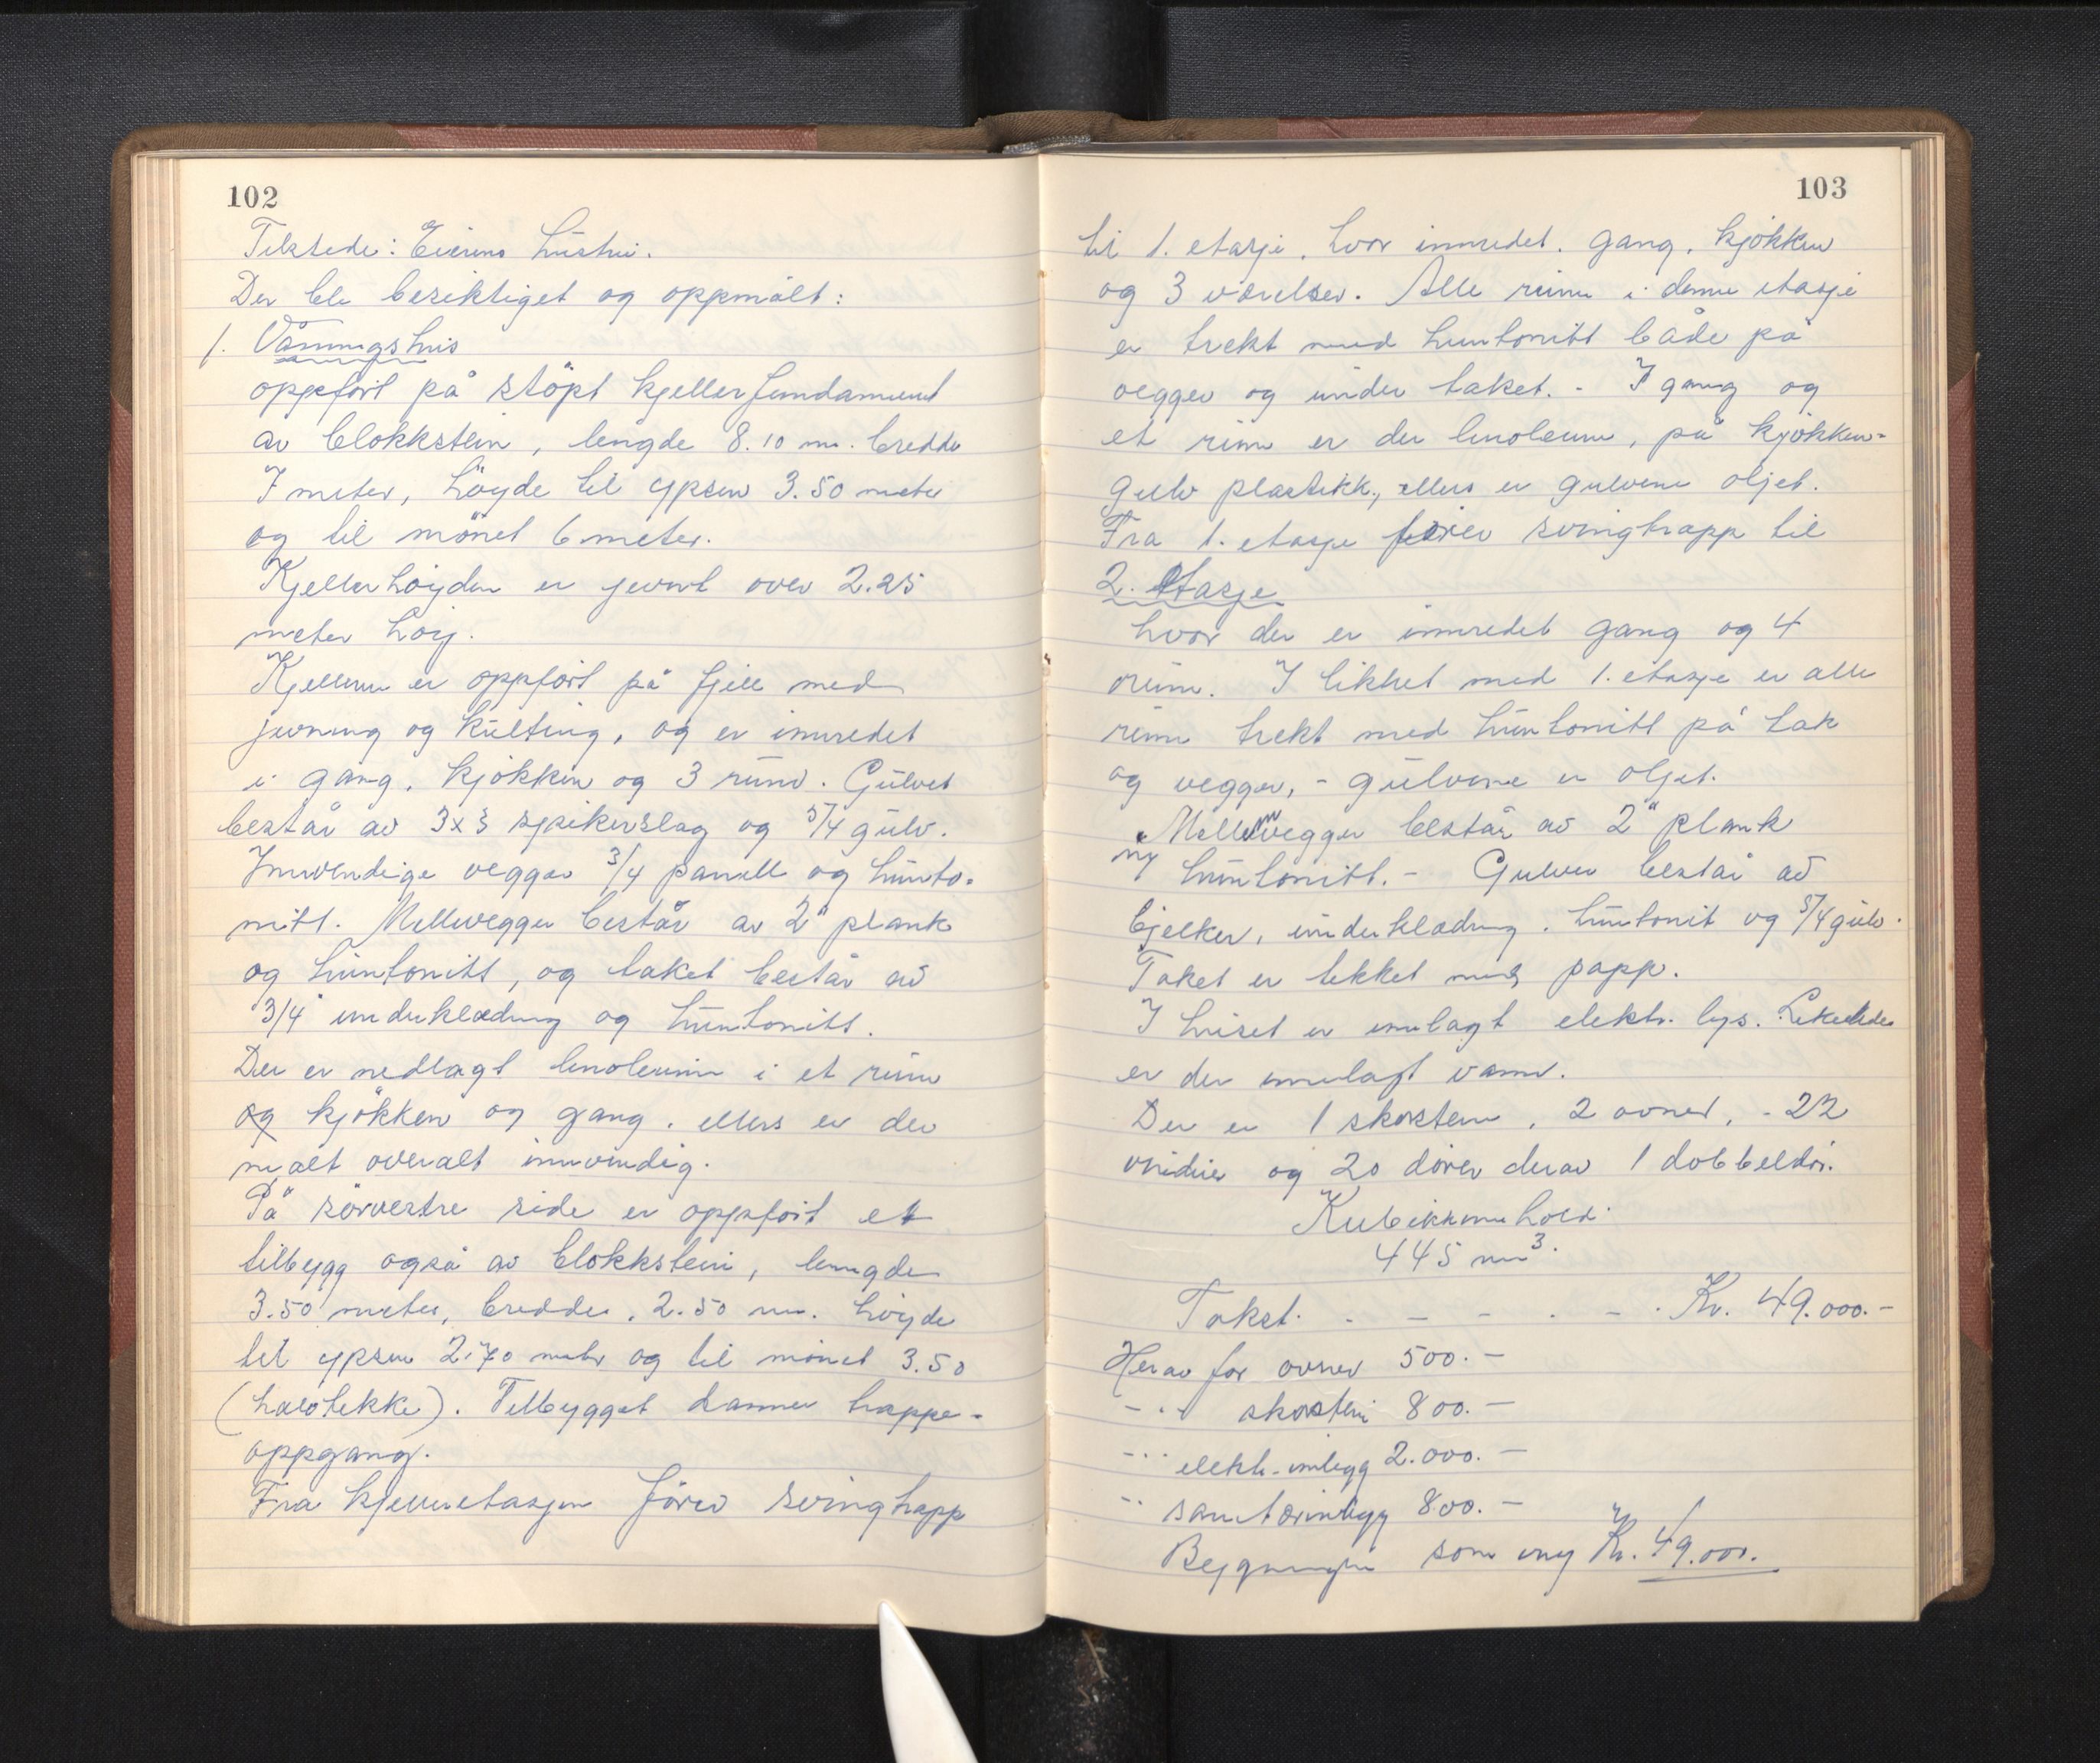 102
Tilstede: Eierens hustru.
Der ble besiktiget og oppmålt:
1. Våningshus
oppfört på stöpt kjellerfundament
av blokkstein, lengde 8.10 m. bredde
7 meter, höyde til gpsen 3.50 meter
og til mönet 6 meter.
Kjellerhöyden er jevnt over 2.25
meter höy.
Kjelleren er oppfört på fjell med
jevning og kulting, og er innredet
i gang, kjökken og 3 rum. Gulvet
består av 3x3 spikerslag og 5/4 gulv.
Innvendige vegger 3/4 panell og hunto-
nitt. Mellevegger består av 2" plank
og huntonitt, og taket består av
3/4" underklædning og huntonitt.
Der er nedlagt linoleum i et rum
og kjökken og gang, ellers er der
malt overalt innvendig.
På sörvestre side er oppfört et
tilbygg også av blokkstein, lengde
3.50 meter, bredde, 2.50 m. höyde
til gpsen 2.70 meter og til mönet 3.50
(halvtekke). Tilbygget danner trappe-
oppgang.
Fra kjelleretasjen förer svingtrapp
103
til 1. etasje, hvor innredet. gang, kjökken
og 3 værelser. Alle rum i denne etasje
er trekt med huntonitt både på
vegger og under taket. - I gang og
et rum er der linoleum, på kjökken-
gulv plastikk, ellers er gulvene oljet.
Fra 1. etasje förer svingtrapp til
2. Etasje
hvor der er innredet gang og 4
rum. I likhet med 1. etasje er alle
rum trekt med huntonitt på tak
og vegger, - gulvene er oljet.
Mellemvegger består av 2" plank
og huntonitt. - Gulver består av
bjelker, underklædning, huntonit og 5/4 gulv.
Taket er tekket med papp.
I huset er innlagt elektr. lys. Likeledes
er der innlagt vann.
Der er 1 skorstein, 2 ovner, - 22
vinduer og 20 dörer derav 1 dobbeldör.
Kubikkinnhold:
445 m3.
Takst. . - - . - . Kr. 49.000.-
Herav for ovner 500.-
- " - skorstein 800.-
- " - elektr. innlegg 2.000.-
- " - sanitærinnlegg 800.-
Bygningen som ny Kr. 49.000.